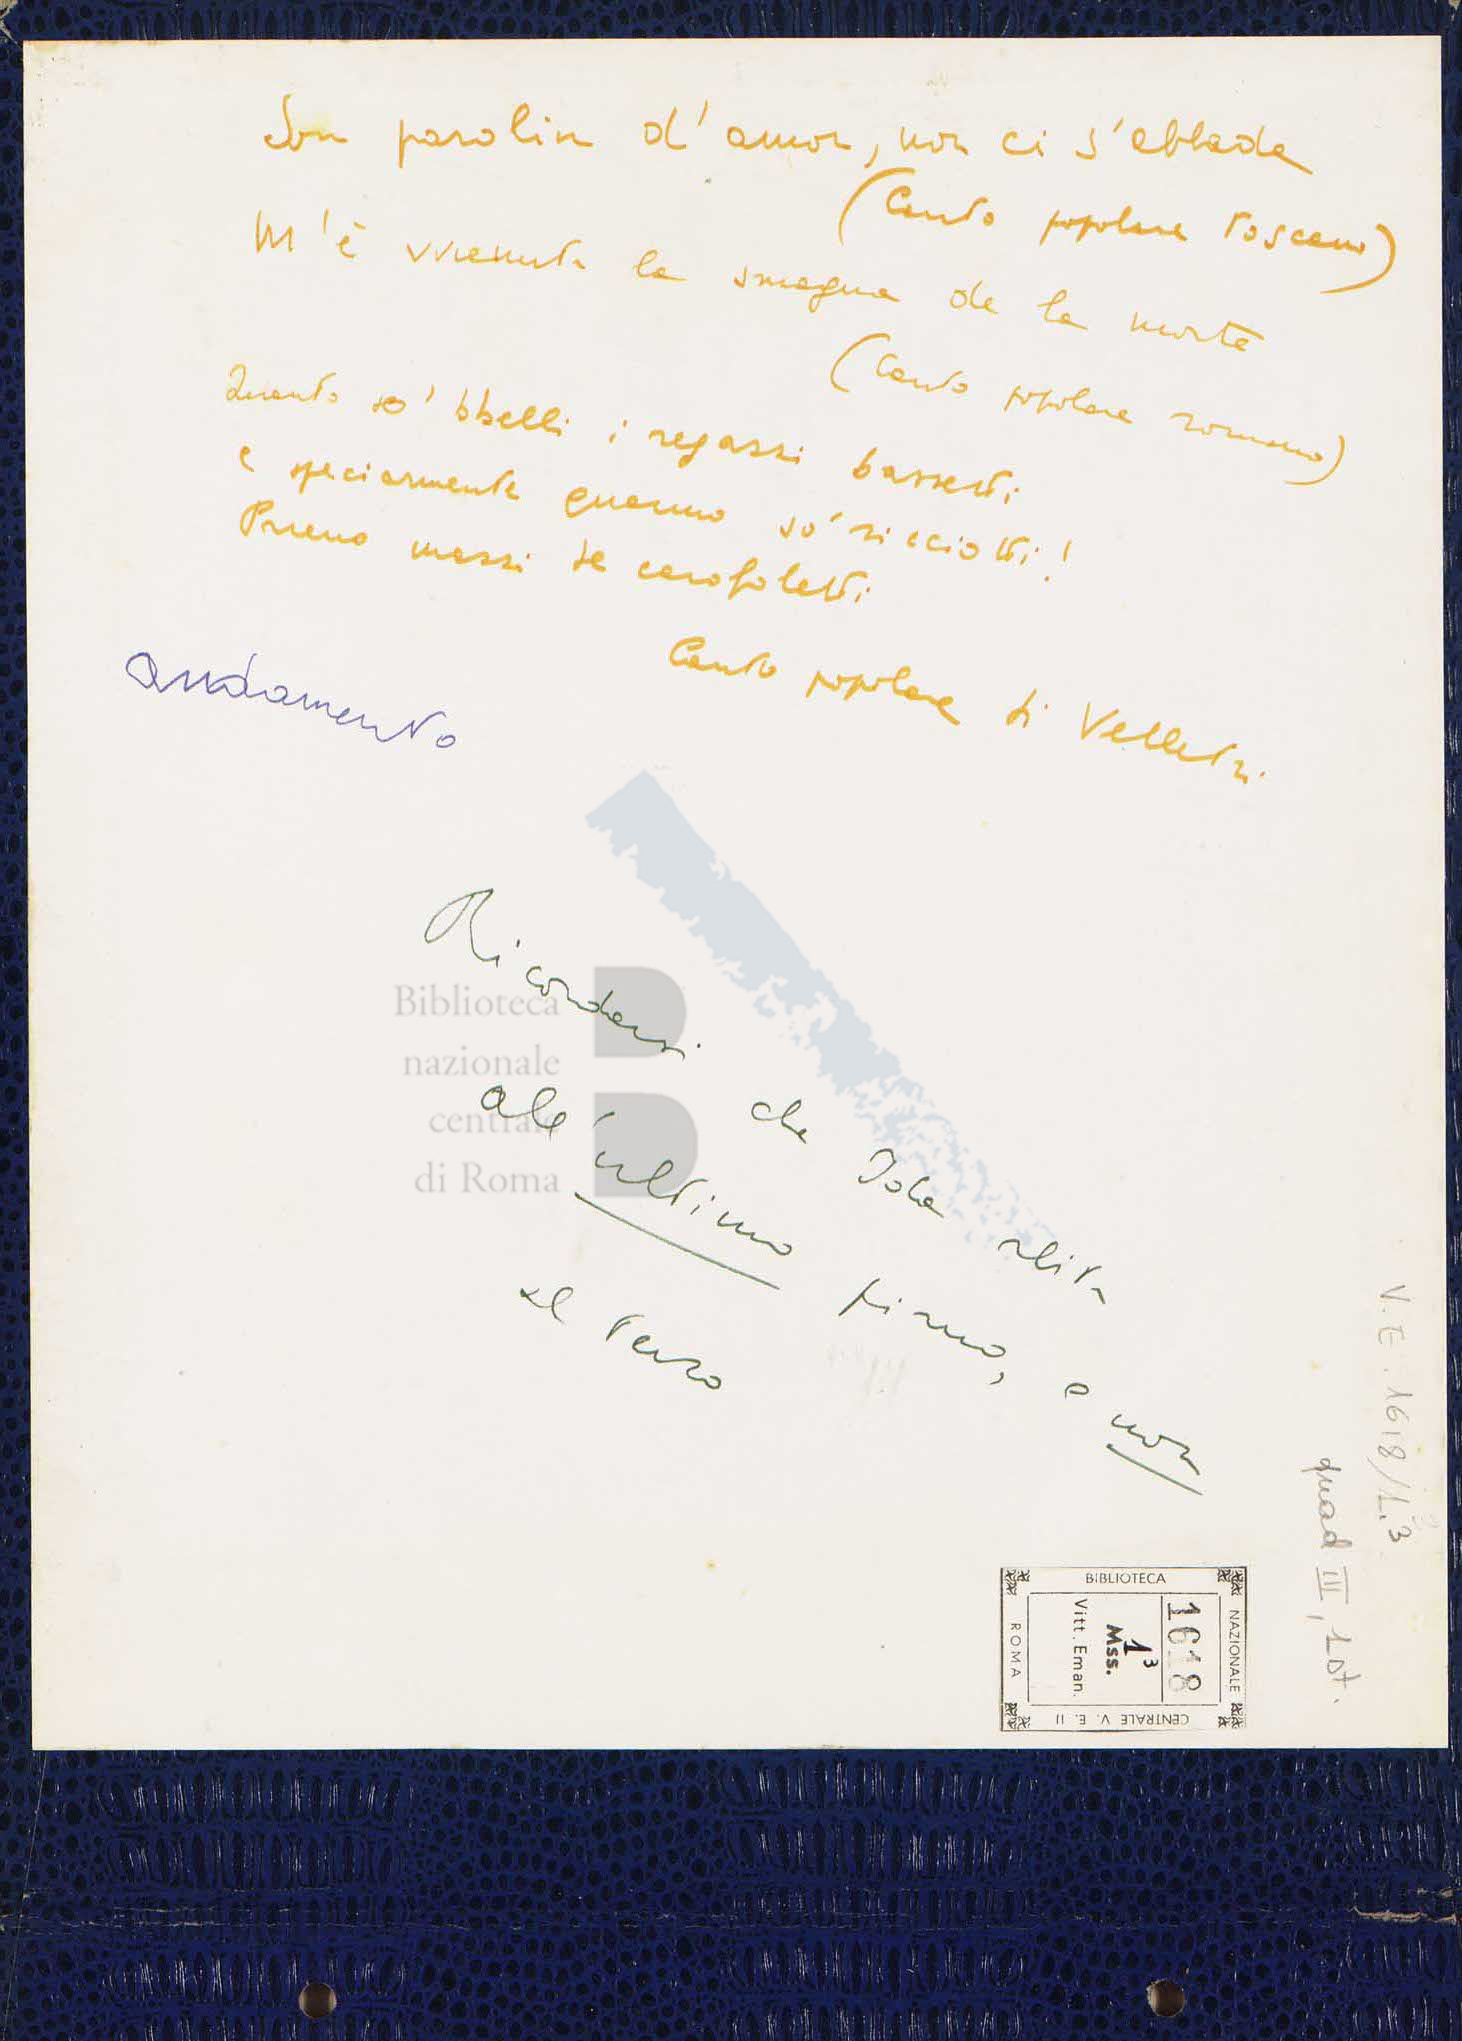 Son parolin d'amor, non ci s'abbada
(Canto popolare toscano)
M'è vvenuta la smagna de la morte
(Canto popolare romano)
Quanto so' bbelli i regazzi bassetti
e speciarmente quanno so' ricciotti!
Pareno mazzi de carofoletti
Canto popolare di Velletri
andamento
Ricordarsi che Iole abita
all'ultimo piano, e non
al terzo
Biblioteca
nazionale
centrale
di Roma
V.E. 1618/1.3
quad III, 1 st.
BIBLIOTECA
NAZIONALE
CENTRALE V. E. II
ROMA
1618
1 3
Mss.
Vitt. Eman.